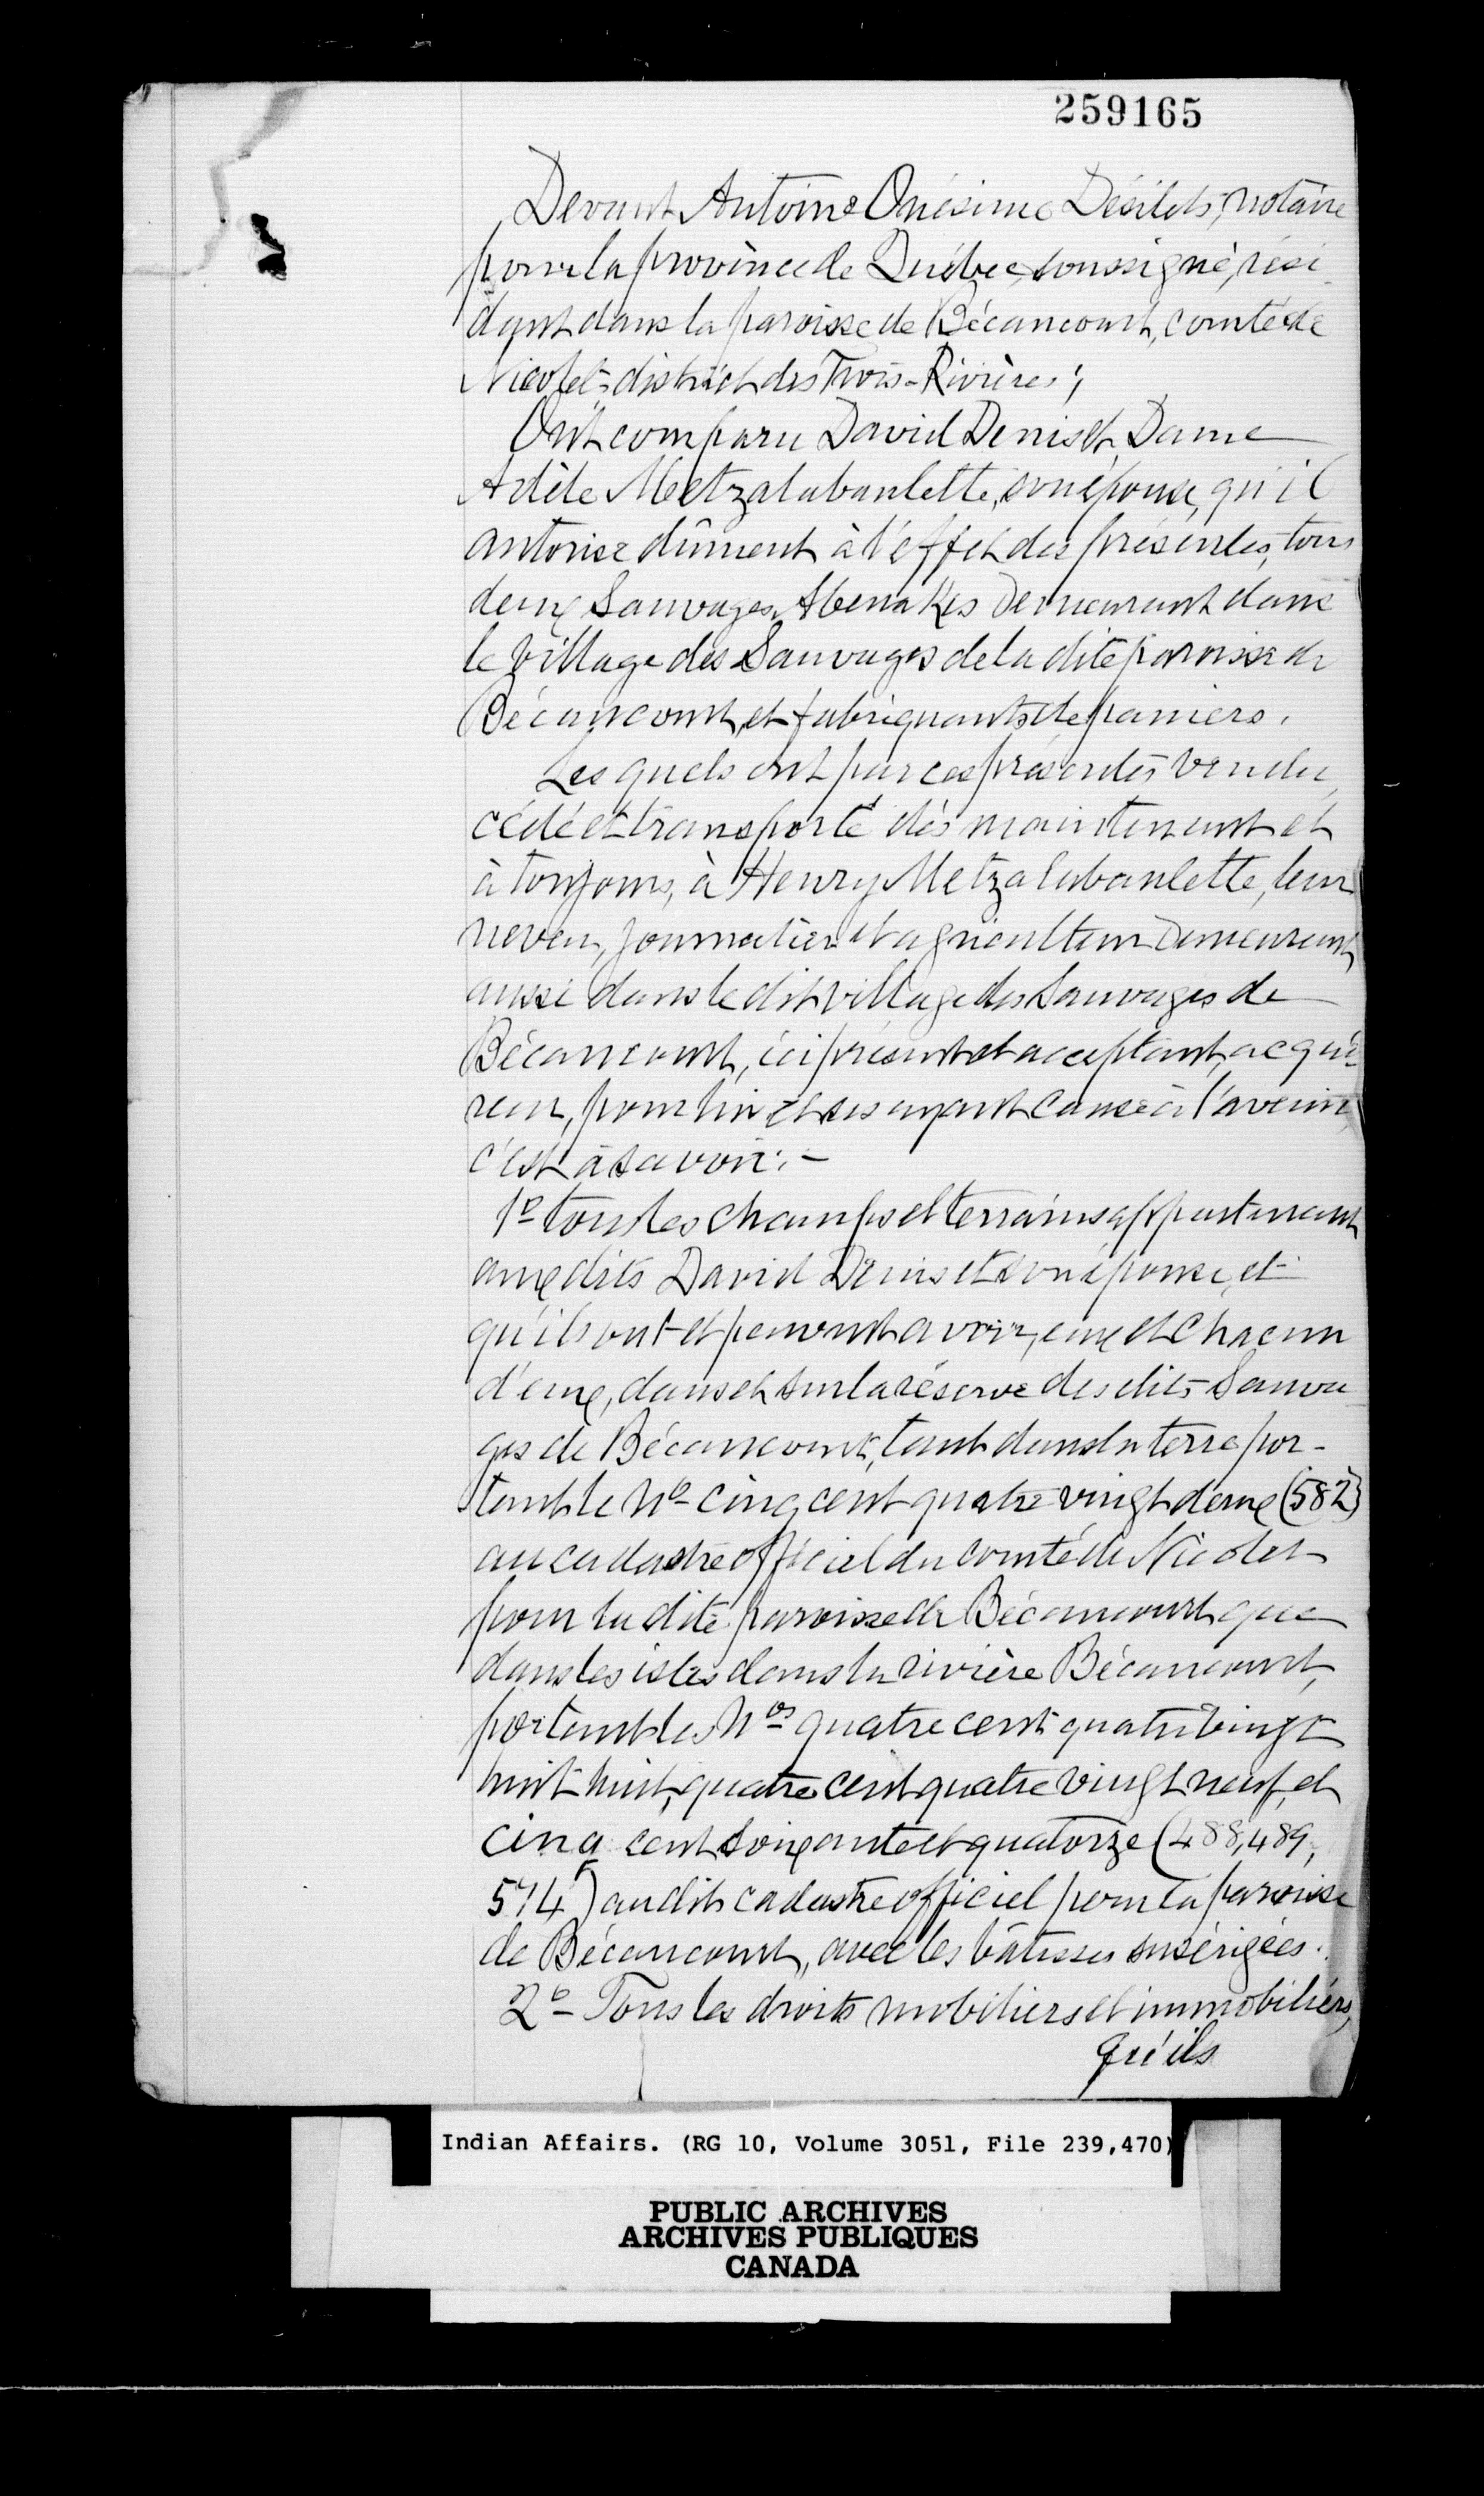 259165
Devant Antoine Onésime Désilets, notaire
pour la province de Québec, soussigné, rési-
dant dans la paroisse de Bécancourt, comté de
Nicolet, district des Trois-Rivières;
Ont comparu David Denis et Dame
Adèle Metzalabanlette, son épouse, qu'il
autorise dûment à l'effet des présentes, tous
deux Sauvages Abenakes demeurant dans
le Village des Sauvages de la dite paroisse de
Bécancourt, et fabriquants de paniers.
Lesquels ont par ces présentes vendu,
cédé et transporté dès maintenant et
à toujours, à Henry Metzalabanlette, leur
neveu, journalier et agriculteur demeurant
aussi dans le dit village des Sauvages de
Bécancourt, ici présent et acceptant, acqué-
reur, pour lui et ses ayant cause à l'avenir,
c'est à savoir:-
1o tous les champs et terrains appartenant
aux dits David Denis et son épouse, et
qu'ils ont et peuvent avoir, eux et chacun
d'eux, dans et sur la réserve des dits Sauva-
ges de Bécancourt, tant dans la terre por-
tant le No cinq cent quatre vingt deux (582)
au cadastre officiel du comté de Nicolet
pour la dite paroisse de Bécancourt que
dans les isles dans la rivière Bécancourt,
portant les Nos quatre cent quatre vingt
huit huit, quatre cent quatre vingt neuf, et
cinq cent soixante et quatorze (488, 489,
574) au dit cadastre officiel pour la paroisse
de Bécancourt, avec les bâtisses sus érigées.
2o- Tous les droits mobiliers et immobiliers,
qu'ils
Indian Affairs. (RG 10, Volume 3051, File 239,470)
PUBLIC ARCHIVES
ARCHIVES PUBLIQUES
CANADA